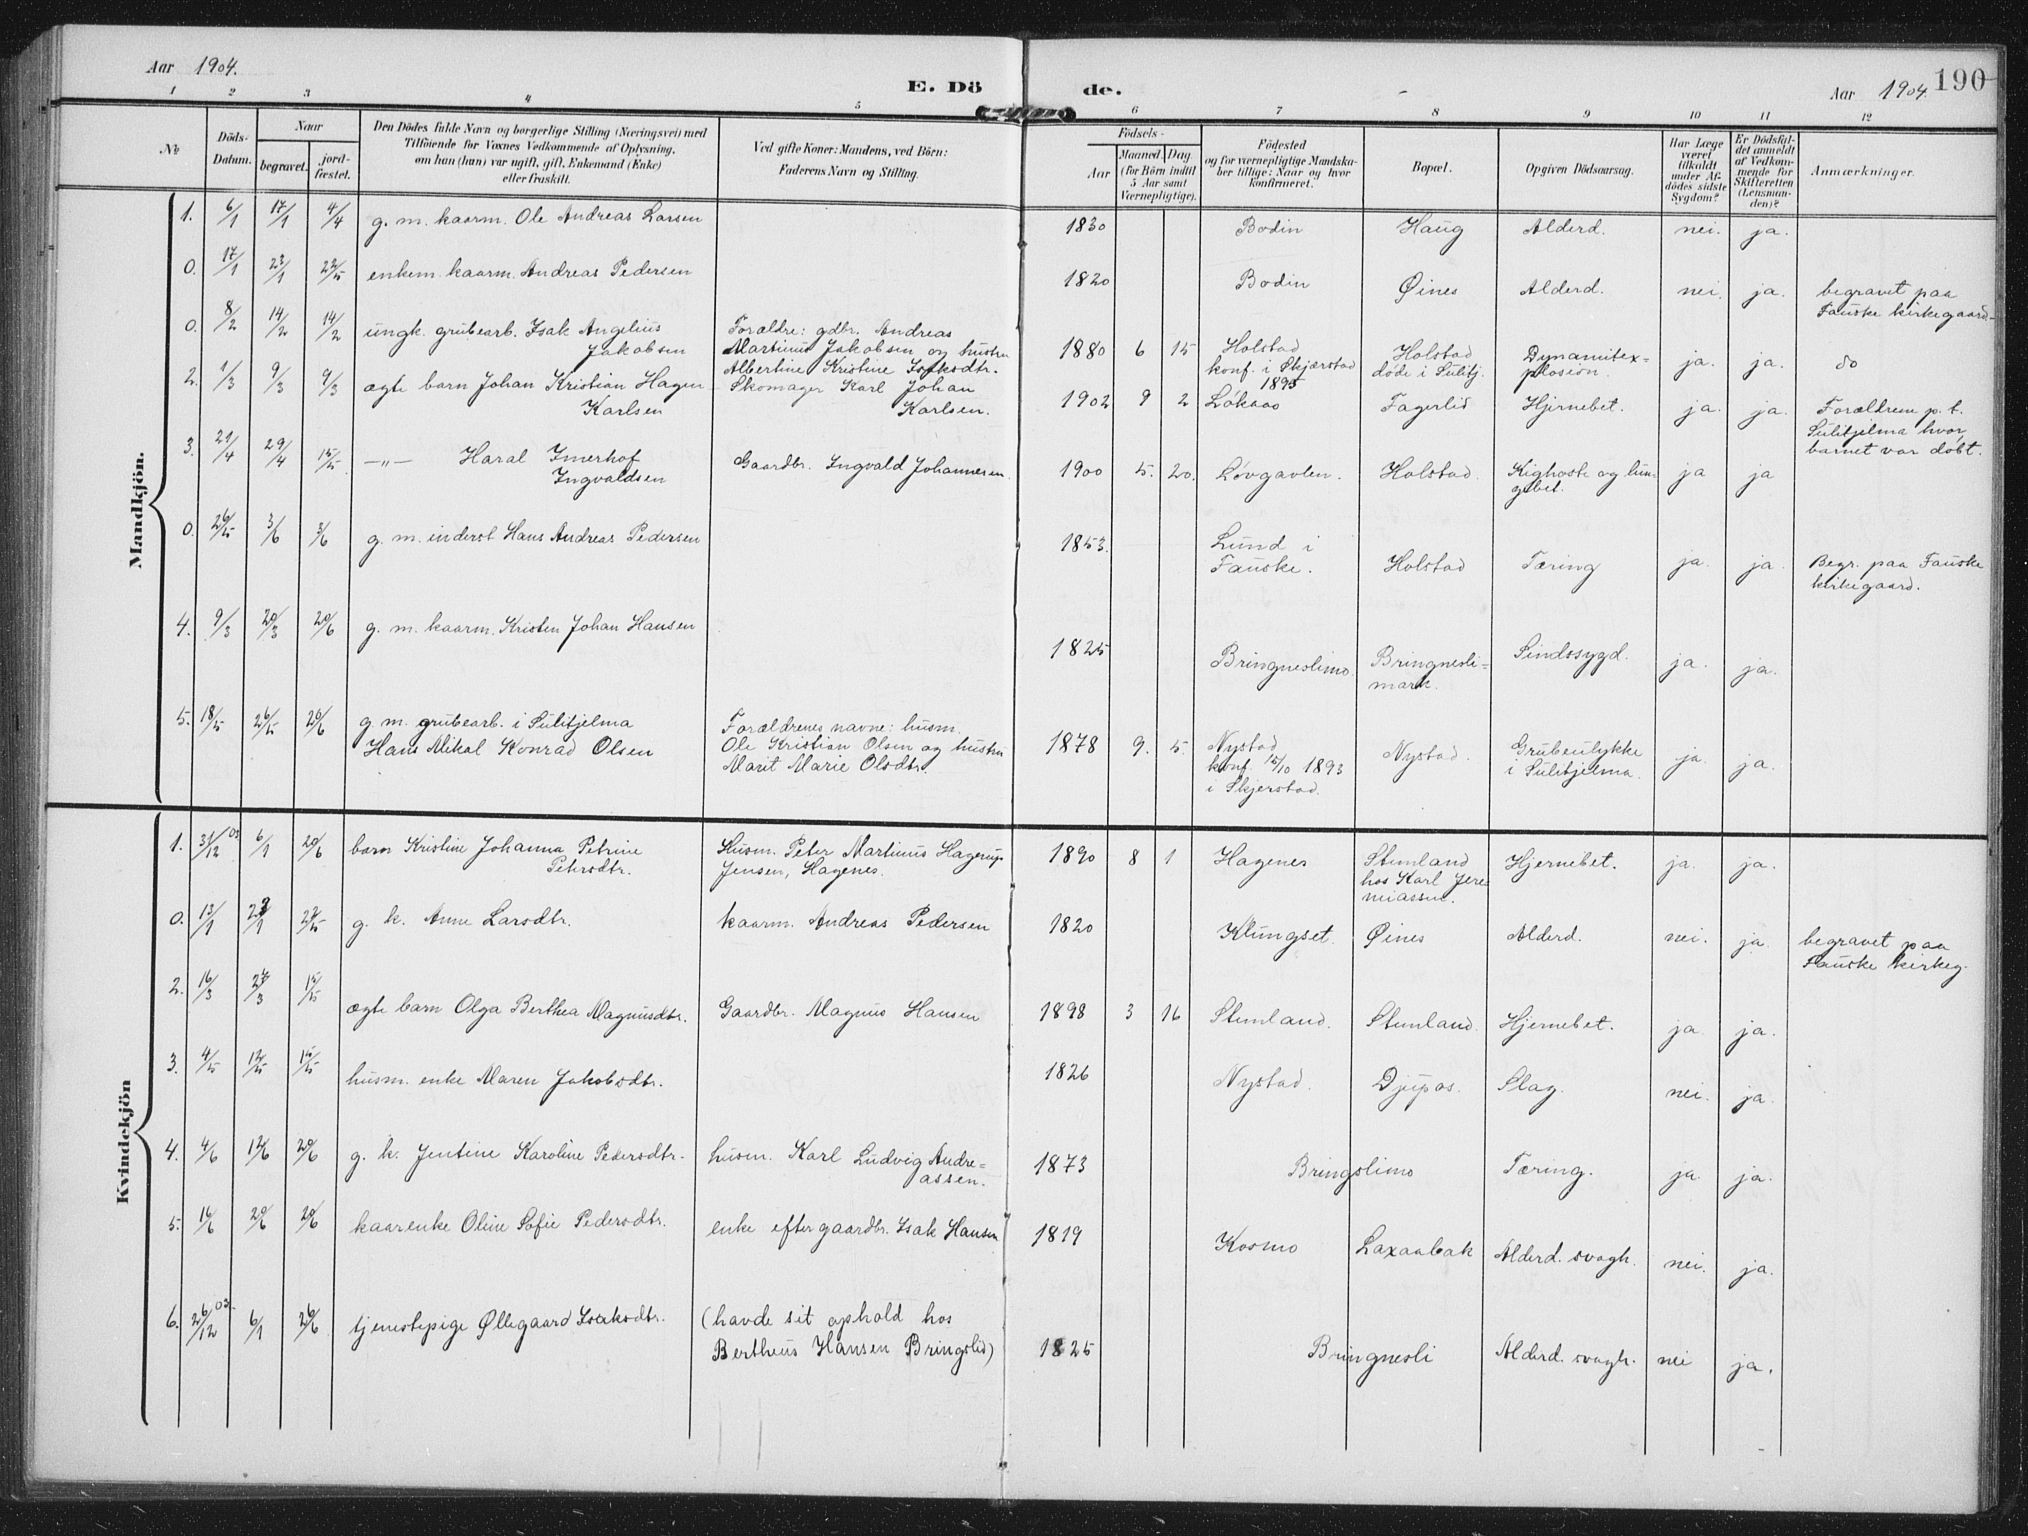 Aar 1904.
E. Dö
de.
Aar 1904.
190
1 2 3 4 5 6 7 8 9 10 11 12
№
Döds-
Datum.
Naar
begravet.
jord-
fæstet.
Den Dödes fulde Navn og borgerlige Stilling (Næringsvei) med
Tilföiende for Voxnes Vedkommende af Oplysning,
om han (hun) var ugift, gift, Enkemand (Enke)
eller fraskilt.
Ved gifte Koner: Mandens, ved Börn:
Faderens Navn og Stilling.
Födsels-
Aar
Maaned. Dag.
(for Börn indtil
5 Aar samt
Værnepligtige).
Födested
og for værnepligtige Mandska-
ber tillige: Naar og hvor
konfirmeret.
Bopæl.
Opgiven Dödsaarsag.
Har Læge
været
tilkaldt
under Af-
dödes sidste
Sygdom?
Er Dödsfal-
det anmeldt
af Vedkom-
mende for
Skifteretten
(Lensman-
den)?
Anmærkninger.
Mandkjön.
1. 6/1 17/1 4/4 g. m. kaarm. Ole Andreas Larsen 1830 Bodin Haug Alderd. nei. ja.
0. 17/1 23/1 22/5 enkem. kaarm. Andreas Pedersen 1820 Bodin Øines Alderd. nei. ja. begravet paa
Fauske kirkegaard.
0. 8/2 14/2 14/2 ungk. grubearb. Isak Angelius
Jakobsen
Forældre: gdbr. Andreas
Martinus Jakobsen og hustru
Albertine Kristine Isaksdtr.
1880 6 15 Holstad
konf. i Skjærstad
1895
Holstad
døde i Sulitj.
Dynamitex-
plosion.
ja. ja. do
2. 1/3 9/3 9/3 ægte barn Johan Kristian Hagen
Karlsen
Skomager Karl Johan
Karlsen.
1902 9 2 Løkaas Fagerlid Hjernebet. ja. ja. Forældrene p. t.
Sulitjelma hvor
barnet var døbt.
3. 21/4 29/4 15/5 —„— Haral Imerhof
Ingvaldsen
Gaardbr. Ingvald Johannesen.
1900 5. 20. Løvgavlen. Holstad. Kighoste og lun-
gebet.
ja ja
0. 26/5 3/6 3/6 g. m. inderst Hans Andreas Pedersen 1853. Lund i
Fauske.
Holstad Tæring ja. ja. Begr. paa Fauske
kirkegaard.
4. 9/3 20/3 20/6 g. m. kaarm. Kristen Johan Hansen 1825 Bringneslimo Bringnesli-
mark.
Sindssygd. ja. ja.
5. 18/5 26/5 20/6 g. m. grubearb. i Sulitjelma
Hans Mikal Konrad Olsen
Forældrenes navne: husm.
Ole Kristian Olsen og hustru
Marit Marie Olsdtr.
1878 9. 5. Nystad
konf. 15/10 1893
i Skjerstad.
Nystad. Grubeulykke
i Sulitjelma.
ja. ja.
Kvindekjön
1. 31/12 03 6/1 20/6 barn Kristine Johanna Petrine
Petersdtr.
Husm. Peter Martinus Hagerup
Jensen, Hagenes.
1890 8 1 Hagenes Stemland
hos Karl Jere-
miassen.
Hjernebet. ja. ja.
0. 13/1 23/1 22/5 g. k. Anne Larsdtr. kaarm. Andreas Pedersen 1820 Klungset. Øines Alderd. nei. ja. begravet paa
Fauske kirkeg.
2. 16/3 24/3 15/5 ægte barn Olga Berthea Magnusdtr. Gaardbr. Magnus Hansen 1898 3 16 Stemland. Stemland. Hjernebet. ja. ja.
3. 4/5 12/5 15/5 husm. enke Maren Jakobsdtr. 1826 Nystad. Djupos. Slag. nei. ja.
4. 4/6 12/6 20/6 g. k. Jentine Karoline Pedersdtr. husm. Karl Ludvig Andre-
assen.
1873 Bringslimo Tæring. ja. ja.
5. 16/6 20/6 20/6 kaarenke Oline Sofie Pedersdtr. enke efter gaardbr. Isak Hansen 1819 Kosmo Laxaabak Alderd. svagh. nei. ja.
6. 26/12 03. 6/1 20/6 tjenestepige Øllegaard Isaksdtr. (havde sit ophold hos
Bertheus Hansen Bringslid)
1825 Bringnesli Alderd. svagh. nei ja.